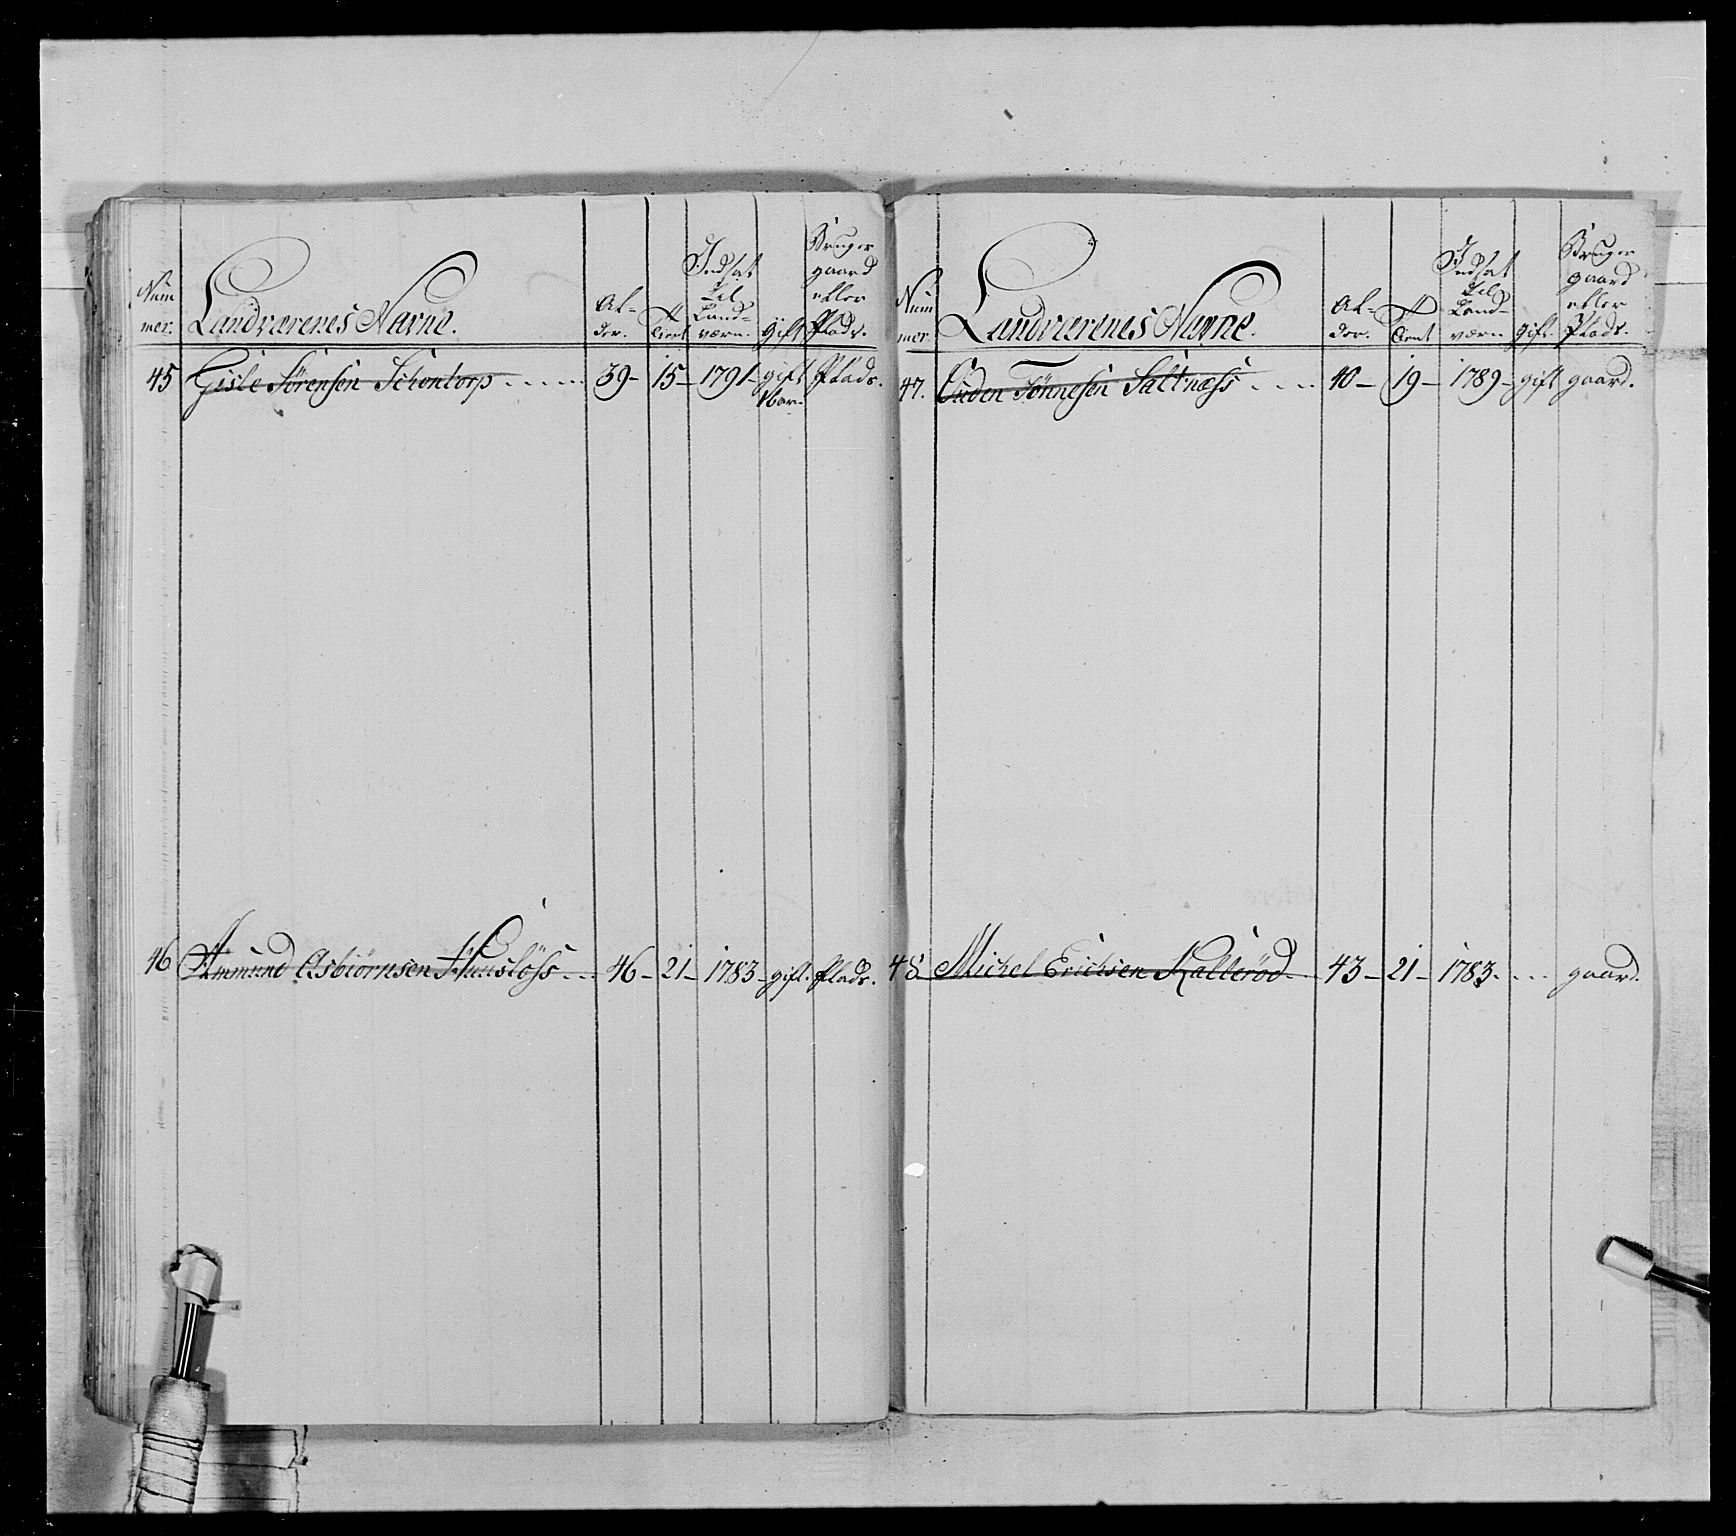 Num
mer.
Landværenes Navne.
Al-
der.
Tient
Indsat
til
Land-
værn.
gift
Bruger
gaard
eller
Plads.
45 Gisle Sörensen Schontorp 39- 15- 1791- gift Plads.
46 Ammund Asbiörnsen Huuslöss 46- 21- 1783- gift. Plads.
Num
mer.
Landværenes Navne.
Al-
der.
Tient
Indsat
til
Land-
værn
gift.
Bruger
gaard
eller
Plads.
47. Guden Tönnesen Saltnæss 40- 19- 1789- gift gaard.
48 Michel Erichsen Kallerød 43- 21- 1783. gaard.